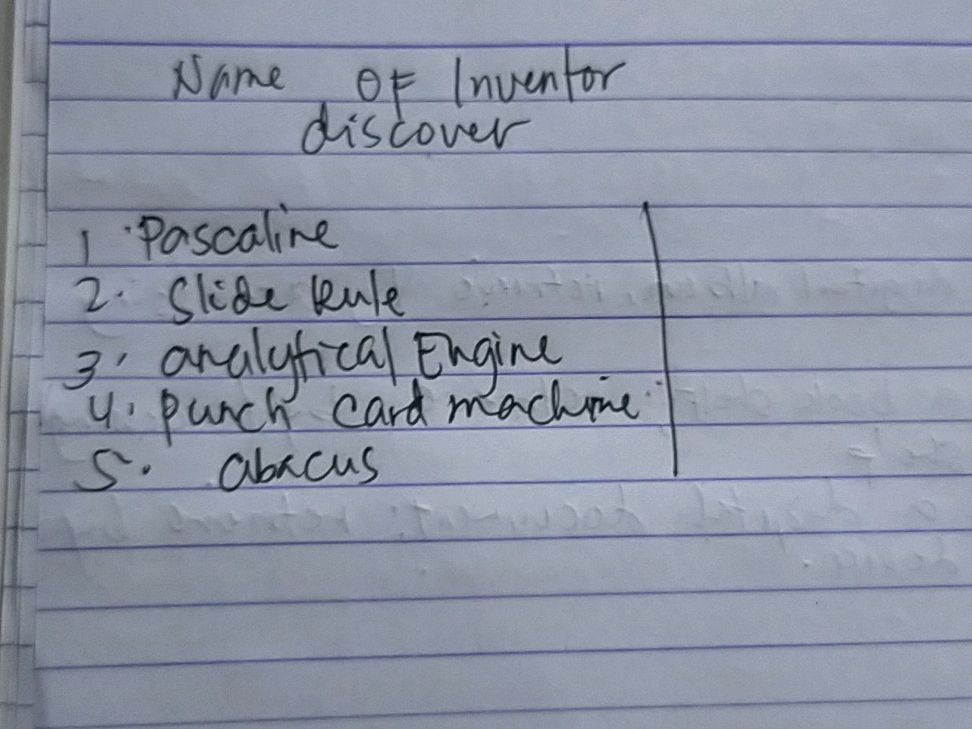 Name OF Inventor
discover
1. Pascaline
2. Slide Rule
3. analytical Engine
4. punch card machine
5. abacus